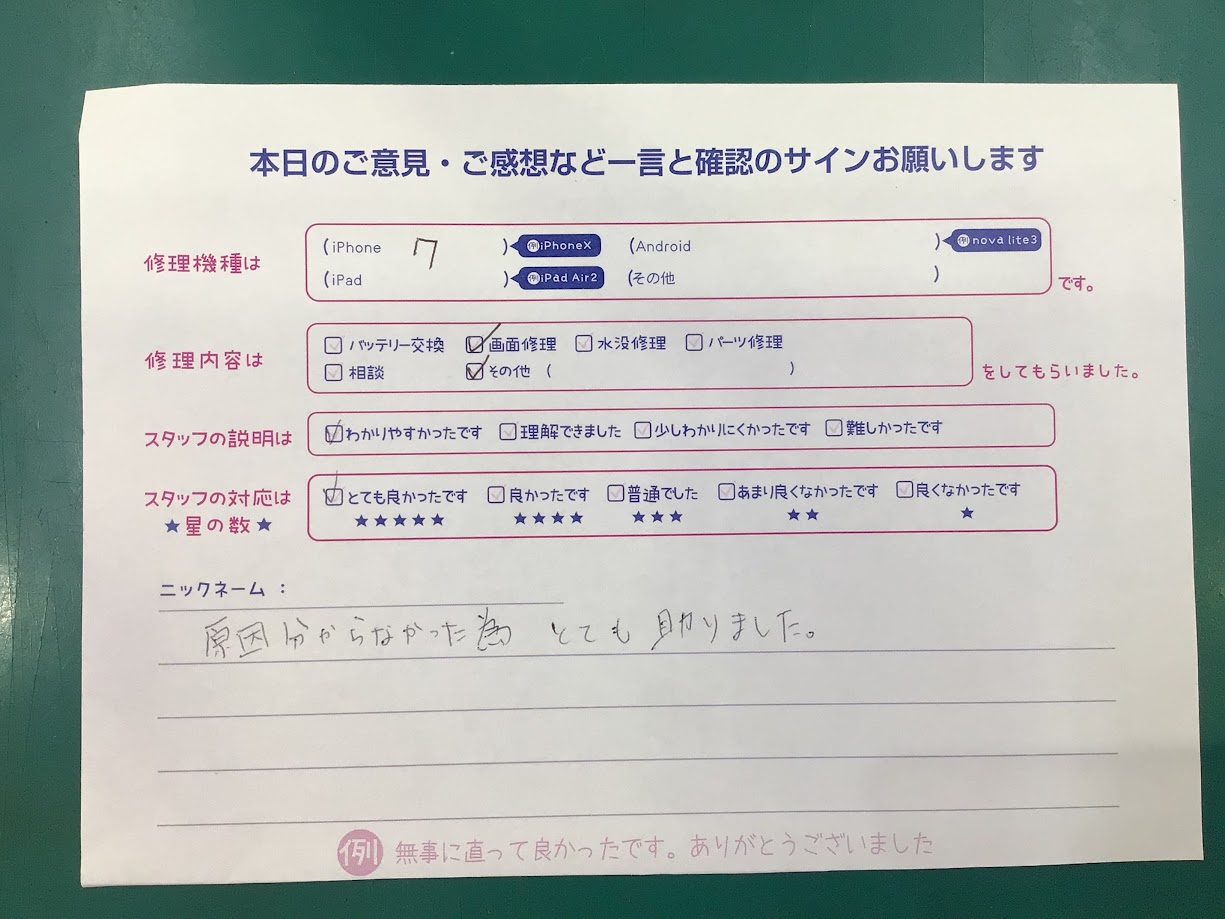 本日のご意見・ご感想など一言と確認のサインお願いします
修理機種は
(iPhone 7 ) 例iPhoneX (Android ) 例nova lite3
(iPad ) 例iPad Air2 (その他 ) です。
修理内容は
バッテリー交換 画面修理 水没修理 パーツ修理
相談 その他 ( ) をしてもらいました。
スタッフの説明は わかりやすかったです 理解できました 少しわかりにくかったです 難しかったです
スタッフの対応は とても良かったです 良かったです 普通でした あまり良くなかったです 良くなかったです
★星の数★ ★★★★★ ★★★★ ★★★ ★★ ★
ニックネーム：
原因分からなかった為 とても助かりました。
例 無事に直って良かったです。ありがとうございました